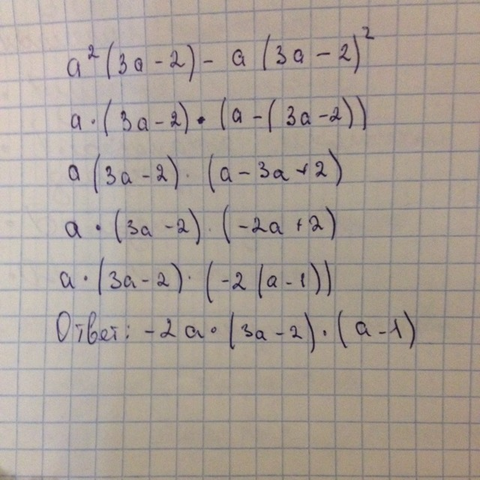 a²(3a-2) - a(3a-2)²
a·(3a-2)·(a-(3a-2))
a(3a-2)·(a-3a+2)
a·(3a-2)·(-2a+2)
a·(3a-2)·(-2(a-1))
Ответ: -2a·(3a-2)·(a-1)